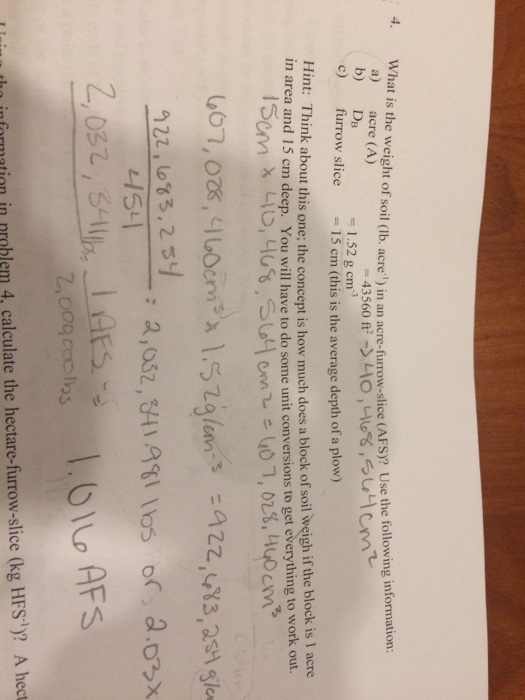 4. What is the weight of soil (lb. acre⁻¹) in an acre-furrow-slice (AFS)? Use the following information:
a) acre (A) = 43560 ft² → 40,468,564 cm²
b) D_B = 1.52 g cm⁻³
c) furrow slice = 15 cm (this is the average depth of a plow)
Hint: Think about this one; the concept is how much does a block of soil weigh if the block is 1 acre
in area and 15 cm deep. You will have to do some unit conversions to get everything to work out.
15cm x 40,468,564 cm² = 607,028,460cm³
607,028,460cm³ x 1.52g/cm⁻³ = 922,683,254 g/cm
922,683,254
454
= 2,032,341.981 lbs or 2.03x
2,032,341 lbs. 1 AFS = 1.016 AFS
2,000,000 lbs
information in problem 4, calculate the hectare-furrow-slice (kg HFS⁻¹)? A hect